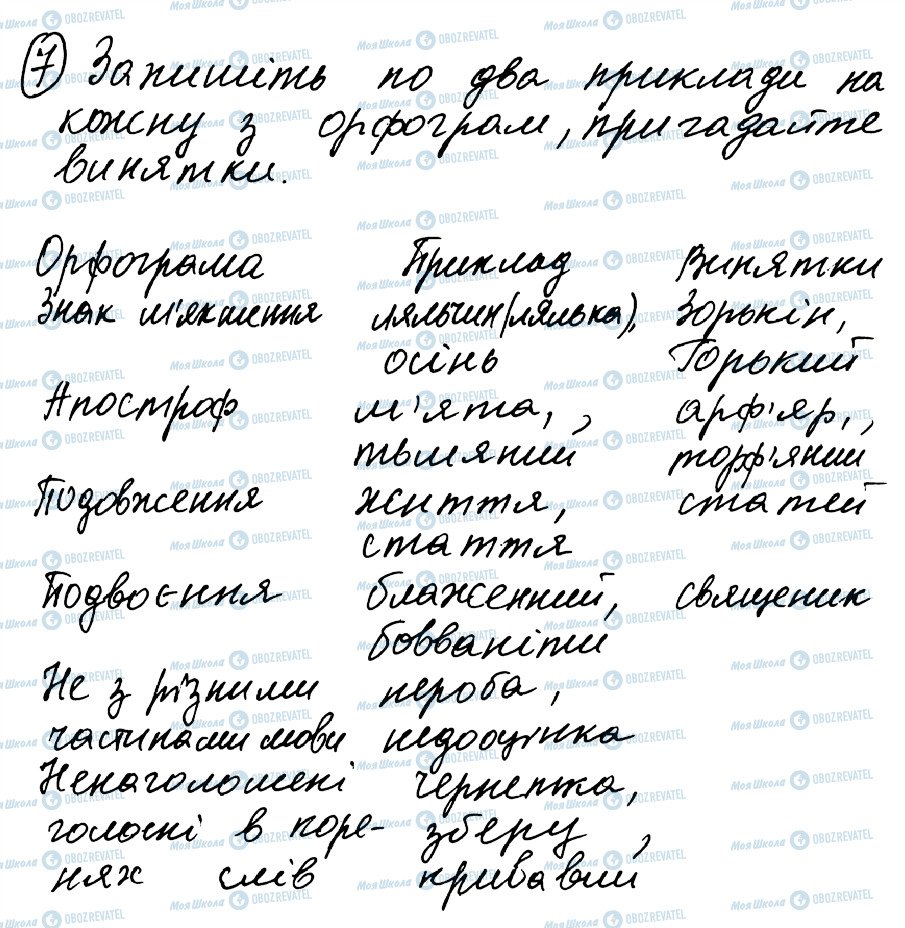 7 Запишіть по два приклади на
кожну з орфограм, пригадайте
винятки.
Орфограма Приклад Винятки
Знак м'якшення ляльчин(лялька), Зорькін,
осінь Горький
Апостроф м'ята, , арф'яр, ,
тьмяний торф'яний
Подовження життя, статей
стаття
Подвоєння блаженний, священик
бовваніти
Не з різними нероба,
частинами мови недооцінка
Ненаголошені чернетка,
голосні в коре- зберу ,
нях слів кривавий